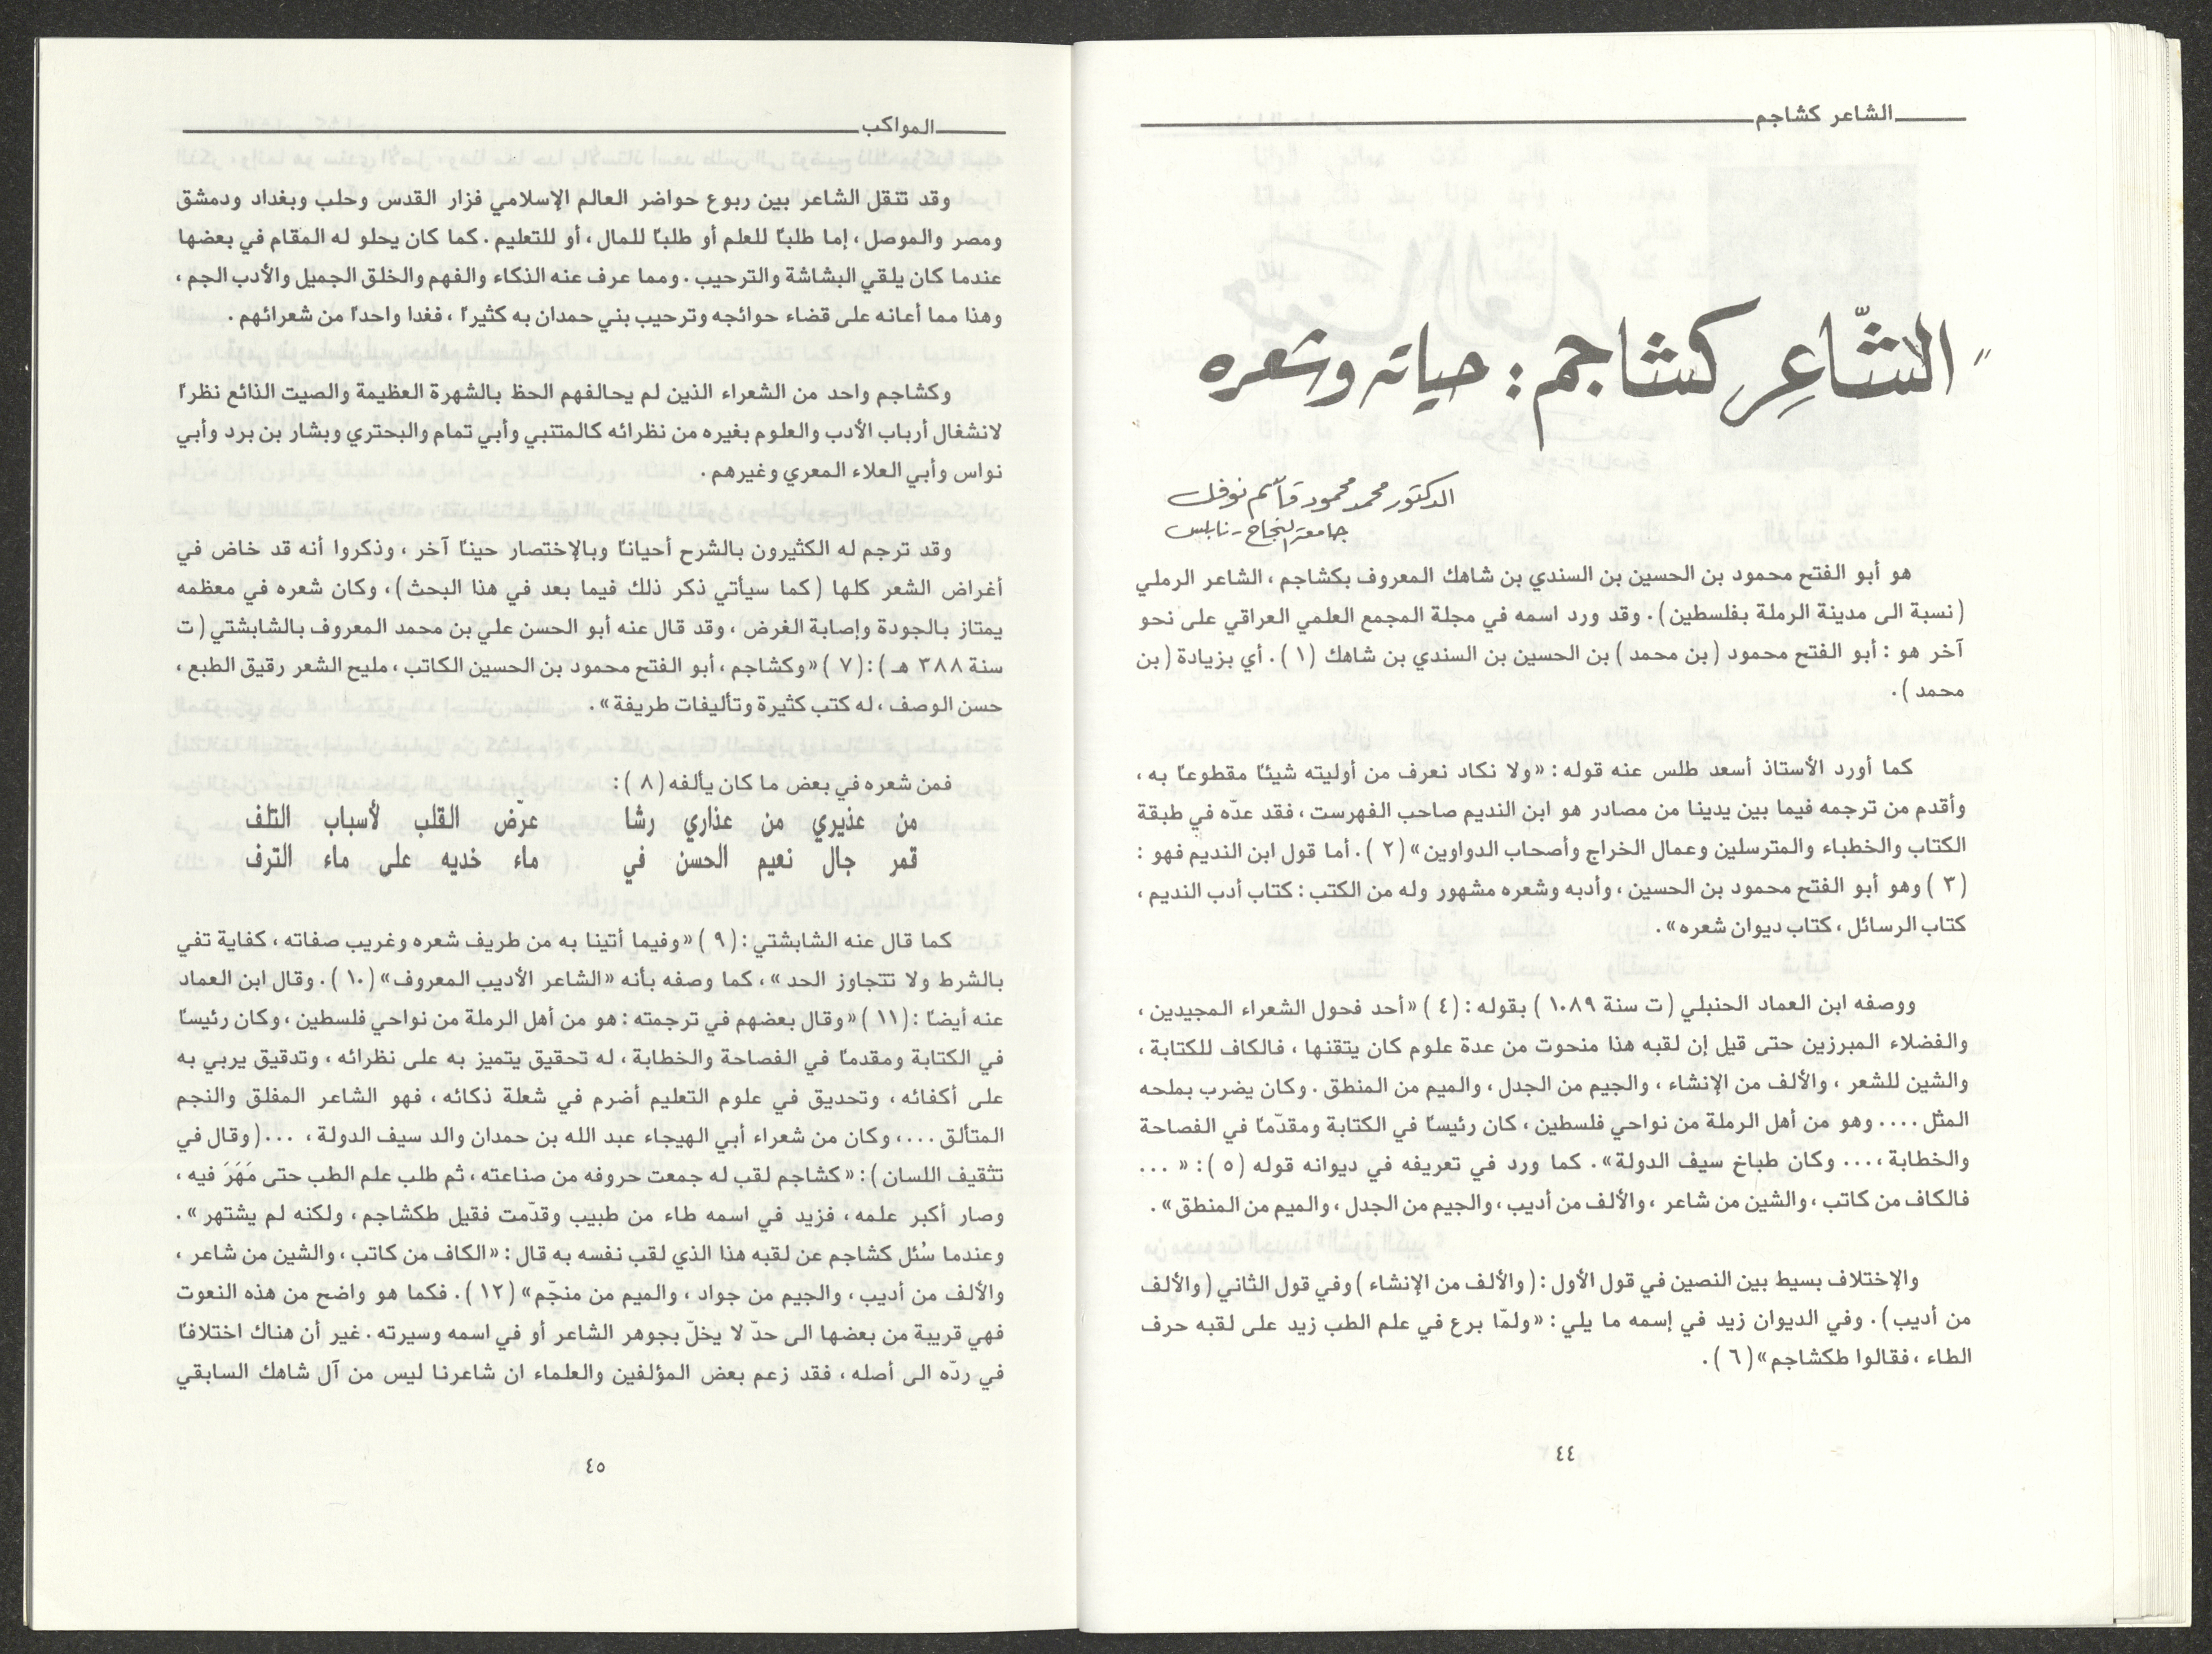 الشاعر كشاجم
"الشّاعِر كشاجم : حياته وشعره
الدكتور محمد محمود قاسم نوفل
جامعة النجاح - نابلس
هو أبو الفتح محمود بن الحسين بن السندي بن شاهك المعروف بكشاجم ، الشاعر الرملي
( نسبة الى مدينة الرملة بفلسطين ) . وقد ورد اسمه في مجلة المجمع العلمي العراقي على نحو
آخر هو : أبو الفتح محمود ( بن محمد ) بن الحسين بن السندي بن شاهك ( ١ ) . أي بزيادة ( بن
محمد ) .
كما أورد الأستاذ أسعد طلس عنه قوله : «ولا نكاد نعرف من أوليته شيئاً مقطوعاً به ،
وأقدم من ترجمه فيما بين يدينا من مصادر هو ابن النديم صاحب الفهرست ، فقد عدّه في طبقة
الكتاب والخطباء والمترسلين وعمال الخراج وأصحاب الدواوين» ( ٢ ) . أما قول ابن النديم فهو :
( ٣ ) وهو أبو الفتح محمود بن الحسين ، وأدبه وشعره مشهور وله من الكتب : كتاب أدب النديم ،
كتاب الرسائل ، كتاب ديوان شعره» .
ووصفه ابن العماد الحنبلي ( ت سنة ١٠٨٩ ) بقوله : ( ٤ ) «أحد فحول الشعراء المجيدين ،
والفضلاء المبرزين حتى قيل إن لقبه هذا منحوت من عدة علوم كان يتقنها ، فالكاف للكتابة ،
والشين للشعر ، والألف من الإنشاء ، والجيم من الجدل ، والميم من المنطق . وكان يضرب بملحه
المثل .... وهو من أهل الرملة من نواحي فلسطين ، كان رئيساً في الكتابة ومقدّماً في الفصاحة
والخطابة ،... وكان طباخ سيف الدولة» . كما ورد في تعريفه في ديوانه قوله ( ٥ ) : « ...
فالكاف من كاتب ، والشين من شاعر ، والألف من أديب ، والجيم من الجدل ، والميم من المنطق» .
والإختلاف بسيط بين النصين في قول الأول : ( والألف من الإنشاء ) وفي قول الثاني ( والألف
من أديب ) . وفي الديوان زيد في إسمه ما يلي : «ولمّا برع في علم الطب زيد على لقبه حرف
الطاء ، فقالوا طكشاجم» ( ٦ ) .
٤٤
المواكب
وقد تنقل الشاعر بين ربوع حواضر العالم الإسلامي فزار القدس وحلب وبغداد ودمشق
ومصر والموصل ، إما طلباً للعلم أو طلباً للمال ، أو للتعليم . كما كان يحلو له المقام في بعضها
عندما كان يلقي البشاشة والترحيب . ومما عرف عنه الذكاء والفهم والخلق الجميل والأدب الجم ،
وهذا مما أعانه على قضاء حوائجه وترحيب بني حمدان به كثيراً ، فغدا واحداً من شعرائهم .
وكشاجم واحد من الشعراء الذين لم يحالفهم الحظ بالشهرة العظيمة والصيت الذائع نظراً
لانشغال أرباب الأدب والعلوم بغيره من نظرائه كالمتنبي وأبي تمام والبحتري وبشار بن برد وأبي
نواس وأبي العلاء المعري وغيرهم .
وقد ترجم له الكثيرون بالشرح أحياناً وبالإختصار حيناً آخر ، وذكروا أنه قد خاض في
أغراض الشعر كلها ( كما سيأتي ذكر ذلك فيما بعد في هذا البحث ) ، وكان شعره في معظمه
يمتاز بالجودة وإصابة الغرض ، وقد قال عنه أبو الحسن علي بن محمد المعروف بالشابشتي ( ت
سنة ٣٨٨ هـ ) : ( ٧ ) «وكشاجم ، أبو الفتح محمود بن الحسين الكاتب ، مليح الشعر رقيق الطبع ،
حسن الوصف ، له كتب كثيرة وتأليفات طريفة» .
فمن شعره في بعض ما كان يألفه ( ٨ ) :
من عذيري من عذاري رشا عرّض القلب لأسباب التلف
قمر جال نعيم الحسن في ماء خديه على ماء الترف
كما قال عنه الشابشتي : ( ٩ ) «وفيما أتينا به من طريف شعره وغريب صفاته ، كفاية تفي
بالشرط ولا تتجاوز الحد» ، كما وصفه بأنه «الشاعر الأديب المعروف» ( ١٠ ) . وقال ابن العماد
عنه أيضاً : ( ١١ ) «وقال بعضهم في ترجمته : هو من أهل الرملة من نواحي فلسطين ، وكان رئيساً
في الكتابة ومقدماً في الفصاحة والخطابة ، له تحقيق يتميز به على نظرائه ، وتدقيق يربي به
على أكفائه ، وتحديق في علوم التعليم أضرم في شعلة ذكائه ، فهو الشاعر المفلق والنجم
المتألق ...، وكان من شعراء أبي الهيجاء عبد الله بن حمدان والد سيف الدولة ، ...( وقال في
تثقيف اللسان ) : «كشاجم لقب له جمعت حروفه من صناعته ، ثم طلب علم الطب حتى مَهَرَ فيه ،
وصار أكبر علمه ، فزيد في اسمه طاء من طبيب وقدّمت فقيل طكشاجم ، ولكنه لم يشتهر» .
وعندما سُئل كشاجم عن لقبه هذا الذي لقب نفسه به قال : «الكاف من كاتب ، والشين من شاعر ،
والألف من أديب ، والجيم من جواد ، والميم من منجّم» ( ١٢ ) . فكما هو واضح من هذه النعوت
فهي قريبة من بعضها الى حدّ لا يخلّ بجوهر الشاعر أو في اسمه وسيرته . غير أن هناك اختلافاً
في ردّه الى أصله ، فقد زعم بعض المؤلفين والعلماء ان شاعرنا ليس من آل شاهك السابقي
٤٥